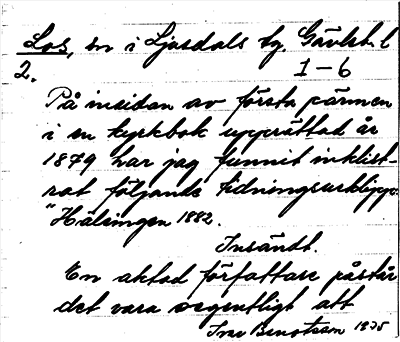 Los, sn i Ljusdals tg. Gävleb. l
2. 1-6
På insidan av första pärmen
i en kyrkbok upprättad år
1879 har jag funnit inklist-
rat följande tidningsurklipp:
"Hälsingen 1882.
Insändt.
En aktad författare påstår
det vara oegentligt att
Ivar Bengtsson 1935